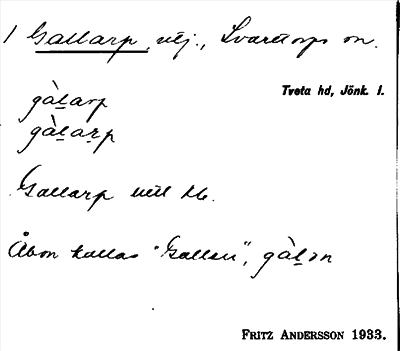 1 Gallarp, utj., Svarttorps sn.
Tveta hd, Jönk. l.
gàḻarp
gàḻaṟp
Gallarp
Åbon kallas "Gallen", gàḻən
FRITZ ANDERSSON 1933.